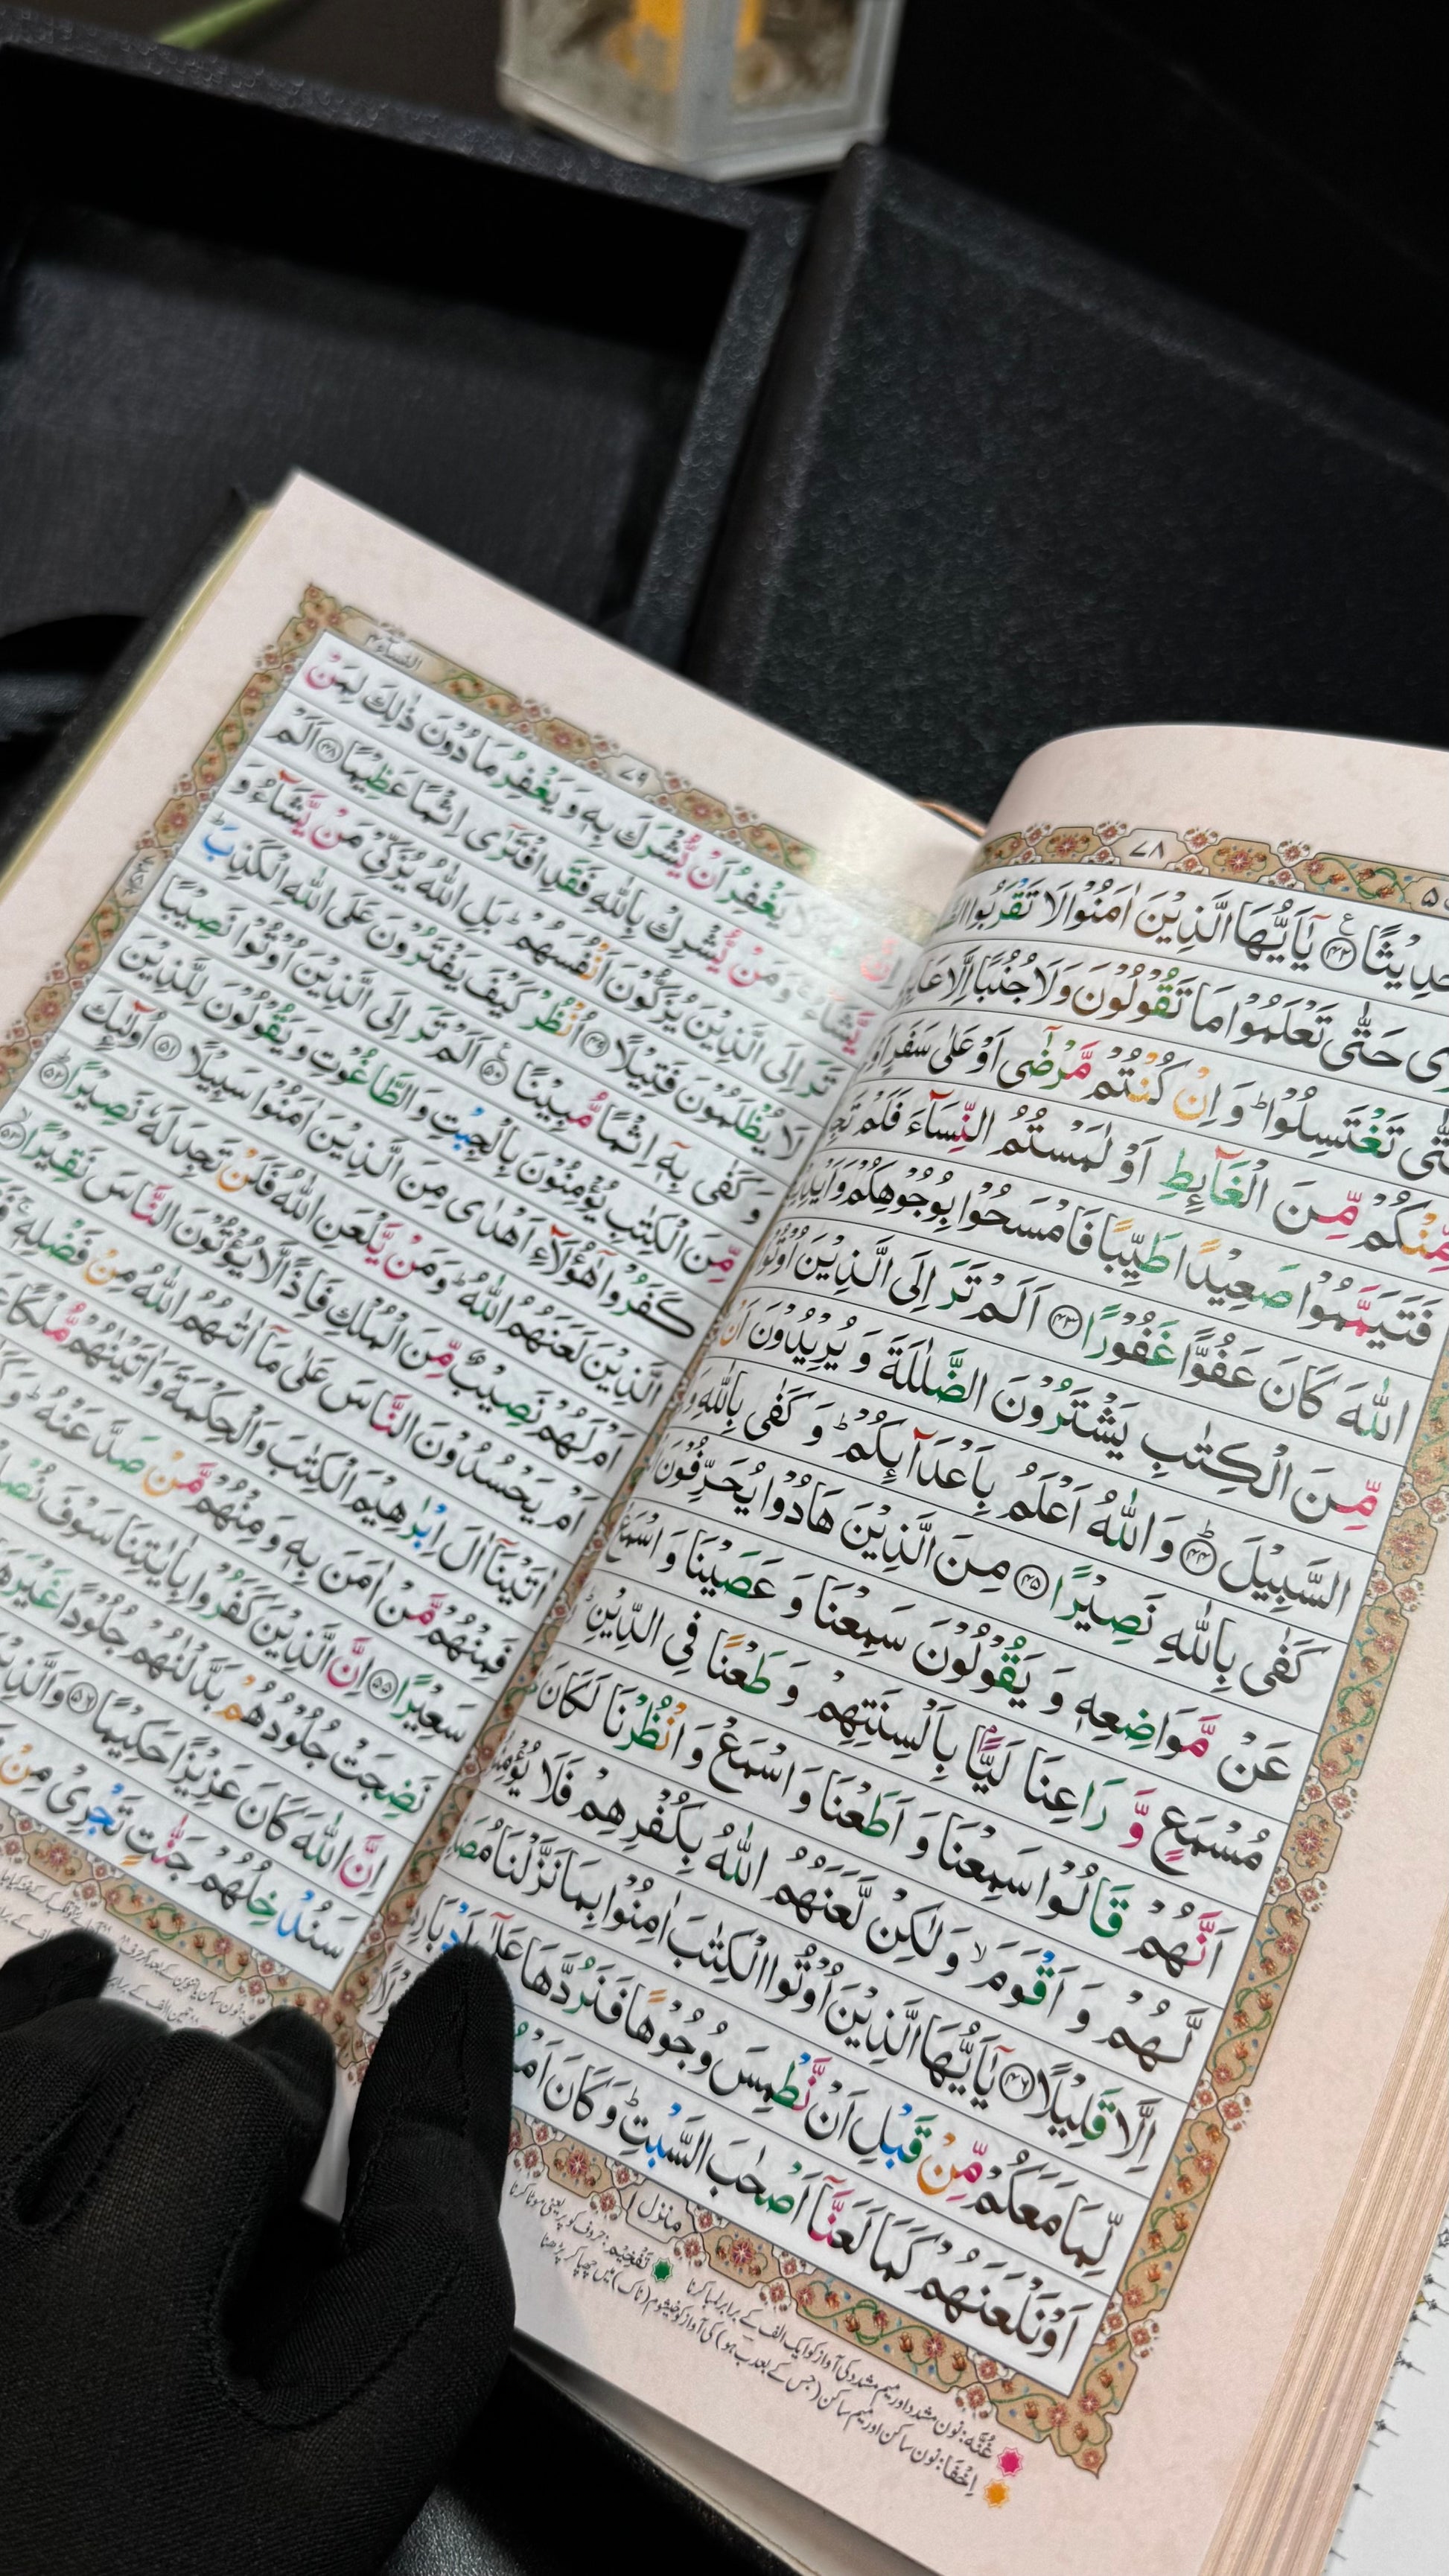 ٧٨
حَدِيْثًا ﴿٤٢﴾ يٰۤاَيُّهَا الَّذِيْنَ اٰمَنُوْا لَا تَقْرَبُوا
حَتّٰى تَعْلَمُوْا مَا تَقُوْلُوْنَ وَلَا جُنُبًا اِلَّا
تَغْتَسِلُوْا ؕ وَ اِنْ كُنْتُمْ مَّرْضٰۤى اَوْ عَلٰى سَفَرٍ اَوْ
مِّنْكُمْ مِّنَ الْغَآىِٕطِ اَوْ لٰمَسْتُمُ النِّسَآءَ فَلَمْ
فَتَيَمَّمُوْا صَعِيْدًا طَيِّبًا فَامْسَحُوْا بِوُجُوْهِكُمْ
اللّٰهَ كَانَ عَفُوًّا غَفُوْرًا ﴿٤٣﴾ اَلَمْ تَرَ اِلَى الَّذِيْنَ اُوْتُوْا
مِّنَ الْكِتٰبِ يَشْتَرُوْنَ الضَّلٰلَةَ وَ يُرِيْدُوْنَ اَنْ
السَّبِيْلَ ﴿٤٤﴾ وَ اللّٰهُ اَعْلَمُ بِاَعْدَآىِٕكُمْ ؕ وَ كَفٰى بِاللّٰهِ
كَفٰى بِاللّٰهِ نَصِيْرًا ﴿٤٥﴾ مِنَ الَّذِيْنَ هَادُوْا يُحَرِّفُوْنَ
عَنْ مَّوَاضِعِهٖ وَ يَقُوْلُوْنَ سَمِعْنَا وَ عَصَيْنَا وَ اسْمَعْ
مُسْمَعٍ وَّ رَاعِنَا لَيًّۢا بِاَلْسِنَتِهِمْ وَ طَعْنًا فِى الدِّيْنِ ؕ
اَنَّهُمْ قَالُوْا سَمِعْنَا وَ اَطَعْنَا وَ اسْمَعْ وَ انْظُرْنَا لَكَانَ
لَّهُمْ وَ اَقْوَمَ ۙ وَلٰكِنْ لَّعَنَهُمُ اللّٰهُ بِكُفْرِهِمْ فَلَا
اِلَّا قَلِيْلًا ﴿٤٦﴾ يٰۤاَيُّهَا الَّذِيْنَ اُوْتُوا الْكِتٰبَ اٰمِنُوْا بِمَا نَزَّلْنَا
لِّمَا مَعَكُمْ مِّنْ قَبْلِ اَنْ نَّطْمِسَ وُجُوْهًا فَنَرُدَّهَا عَلٰۤى
اَوْ نَلْعَنَهُمْ كَمَا لَعَنَّاۤ اَصْحٰبَ السَّبْتِ ؕ وَ كَانَ
منزل ١
غُنّه: نون مشدد اور میم مشدد کی آواز کو ایک الف کے برابر لمبا کرنا
تفخیم: حروف کو پُر یعنی موٹا کرنا
اِخفا: نون ساکن اور میم ساکن (جس کے بعد ب ہو) کی آواز کو خیشوم (ناک) میں چھپا کر پڑھنا
النِّسَآء ٤
٧٩
يَغْفِرُ اَنْ يُّشْرَكَ بِهٖ وَ يَغْفِرُ مَا دُوْنَ ذٰلِكَ لِمَنْ
وَ مَنْ يُّشْرِكْ بِاللّٰهِ فَقَدِ افْتَرٰۤى اِثْمًا عَظِيْمًا ﴿٤٨﴾ اَلَمْ
تَرَ اِلَى الَّذِيْنَ يُزَكُّوْنَ اَنْفُسَهُمْ ؕ بَلِ اللّٰهُ يُزَكِّىْ مَنْ يَّشَآءُ وَ
لَا يُظْلَمُوْنَ فَتِيْلًا ﴿٤٩﴾ اُنْظُرْ كَيْفَ يَفْتَرُوْنَ عَلَى اللّٰهِ الْكَذِبَ ؕ
وَ كَفٰى بِهٖۤ اِثْمًا مُّبِيْنًا ﴿٥٠﴾ اَلَمْ تَرَ اِلَى الَّذِيْنَ اُوْتُوْا نَصِيْبًا
مِّنَ الْكِتٰبِ يُؤْمِنُوْنَ بِالْجِبْتِ وَ الطَّاغُوْتِ وَ يَقُوْلُوْنَ لِلَّذِيْنَ
كَفَرُوْا هٰۤؤُلَآءِ اَهْدٰى مِنَ الَّذِيْنَ اٰمَنُوْا سَبِيْلًا ﴿٥١﴾ اُولٰٓىِٕكَ
الَّذِيْنَ لَعَنَهُمُ اللّٰهُ ؕ وَ مَنْ يَّلْعَنِ اللّٰهُ فَلَنْ تَجِدَ لَهٗ نَصِيْرًا ﴿٥٢﴾
اَمْ لَهُمْ نَصِيْبٌ مِّنَ الْمُلْكِ فَاِذًا لَّا يُؤْتُوْنَ النَّاسَ نَقِيْرًا ﴿٥٣﴾
اَمْ يَحْسُدُوْنَ النَّاسَ عَلٰى مَاۤ اٰتٰىهُمُ اللّٰهُ مِنْ فَضْلِهٖ ۚ
اٰتَيْنَاۤ اٰلَ اِبْرٰهِيْمَ الْكِتٰبَ وَ الْحِكْمَةَ وَ اٰتَيْنٰهُمْ مُّلْكًا
فَمِنْهُمْ مَّنْ اٰمَنَ بِهٖ وَ مِنْهُمْ مَّنْ صَدَّ عَنْهُ ؕ وَ
سَعِيْرًا ﴿٥٥﴾ اِنَّ الَّذِيْنَ كَفَرُوْا بِاٰيٰتِنَا سَوْفَ
نَضِجَتْ جُلُوْدُهُمْ بَدَّلْنٰهُمْ جُلُوْدًا غَيْرَهَا
اِنَّ اللّٰهَ كَانَ عَزِيْزًا حَكِيْمًا ﴿٥٦﴾ وَ الَّذِيْنَ
سَنُدْخِلُهُمْ جَنّٰتٍ تَجْرِىْ مِنْ